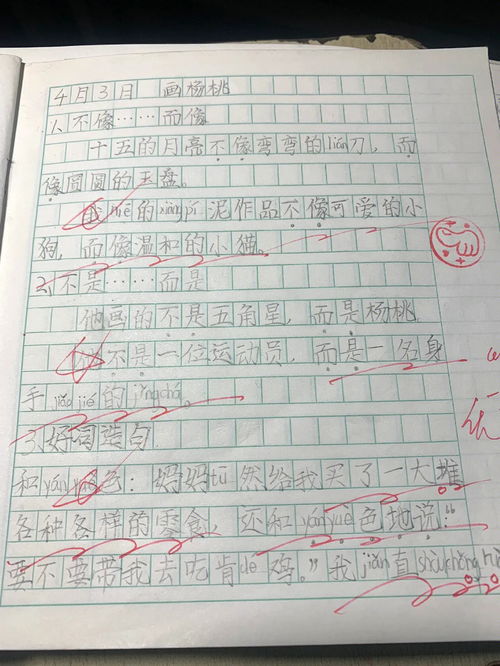 4月3日 画杨桃
1、不像……而像
十五的月亮不像弯弯的lián刀,而
像圆圆的玉盘。
的xiàngpí泥作品不像可爱的小
狗,而像温和的小猫。
2、不是……而是
他画的不是五角星,而是杨桃.
不是一位运动员,而是一名身
手jiǎojié的jǐngchá。
3、好词造句
和yányuè色:妈妈tū然给我买了一大堆
各种各样的零食,还和yányuè色地说:“
要不要带我去吃肯dé鸡。”我jiǎn直shòuchǒng